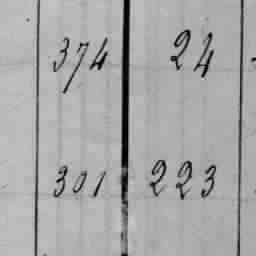 374 24
301 223